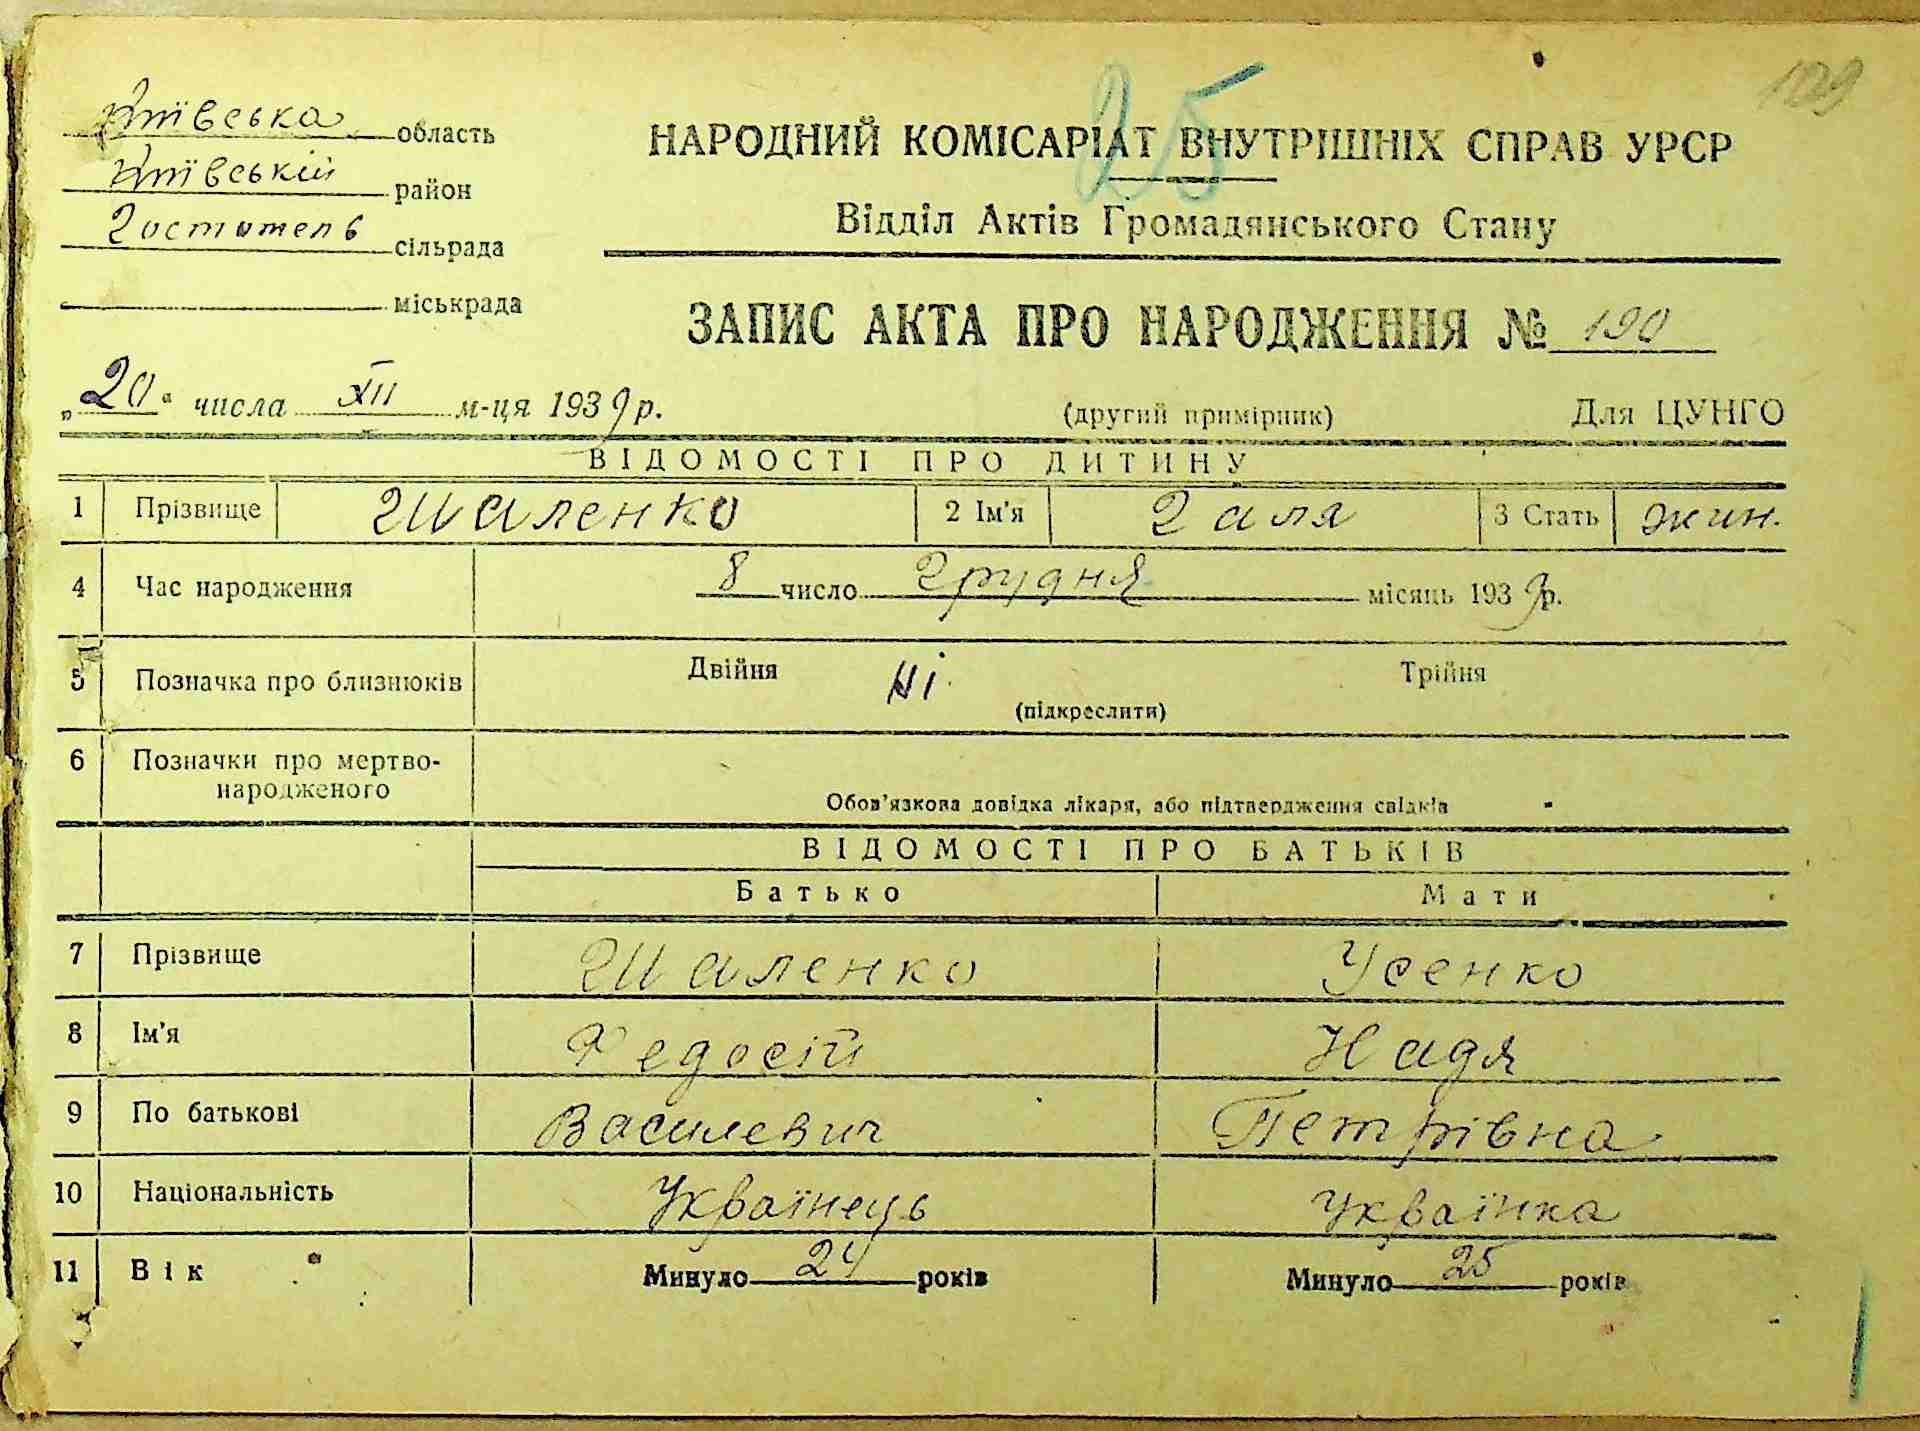 25
109
Київська область
Київський район
Гостомель сільрада
міськрада
НАРОДНИЙ КОМІСАРІАТ ВНУТРІШНІХ СПРАВ УРСР
Відділ Актів Громадянського Стану
ЗАПИС АКТА ПРО НАРОДЖЕННЯ № 190
„20“ числа XII м-ця 1939 р.
(другий примірник) Для ЦУНГО
ВІДОМОСТІ ПРО ДИТИНУ
1 Прізвище Шаленко 2 Ім'я Галя 3 Стать жин.
4 Час народження 8 число Грудня місяць 1939 р.
5 Позначка про близнюків Двійня Ні Трійня
(підкреслити)
6 Позначки про мертво-
народженого
Обов'язкова довідка лікаря, або підтвердження свідків
ВІДОМОСТІ ПРО БАТЬКІВ
Батько Мати
7 Прізвище Шаленко Усенко
8 Ім'я Федосій Надя
9 По батькові Василевич Петрівна
10 Національність Українець Українка
11 Вік Минуло 24 років Минуло 25 років